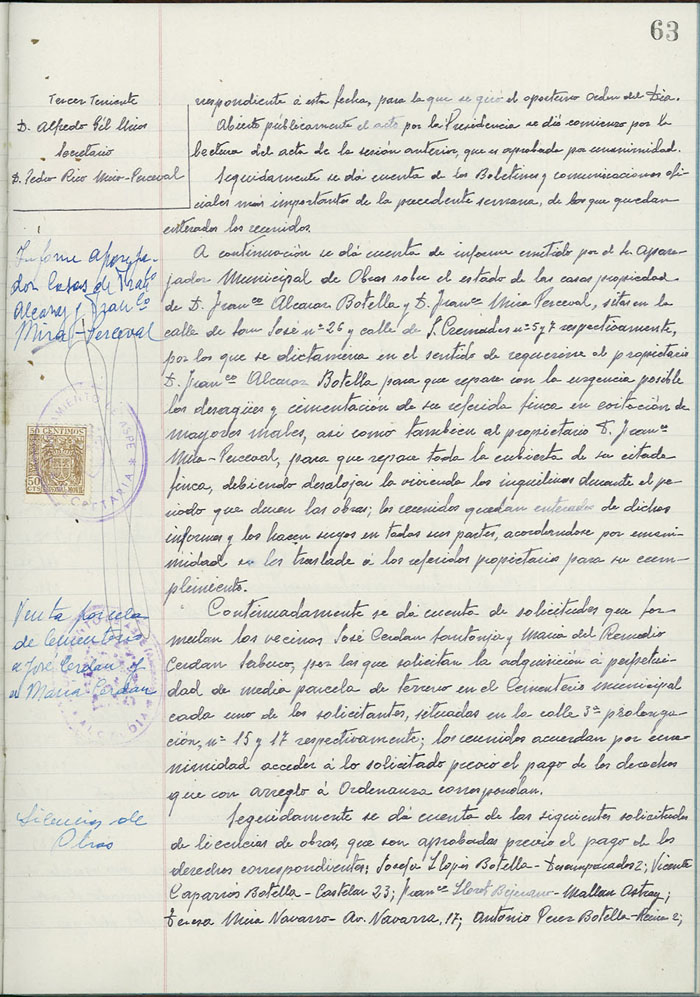 63
Tercer Teniente
D. Alfredo Gil Mira
Secretario
D. Pedro Rico Miro-Perceval
rrespondiente á esta fecha, para la que se giró el oportuno Orden del Dia.
Abierto públicamente el acto por la Presidencia se dió comienzo por la
lectura del acta de la sesión anterior, que es aprobada por unanimidad.
Seguidamente se dá cuenta de los Boletines y comunicaciones ofi-
ciales mas importantes de la precedente semana, de los que quedan
enterados los reunidos.
Informe Apareja-
dor Casas de Franco
Alcaraz y Franco
Mira-Perceval
A continuación se dá cuenta de informe emitido por el Sr. Apare-
jador Municipal de Obras sobre el estado de las casas propiedad
de D. Franco Alcaraz Botella y D. Franco Mira Perceval, sitas en la
calle de San José nº 26 y calle de S. Cremades nº 5 y 7 respectivamente,
por los que se dictamina en el sentido de requerirse al propietario
D. Franco Alcaraz Botella para que repase con la urgencia posible
los desagües y cimentación de su referida finca en evitación de
mayores males, asi como tambien al propietario D. Franco
Mira-Perceval, para que repase toda la cubierta de su citada
finca, debiendo desalojar la vivienda los inquilinos durante el pe-
riodo que duren las obras; los reunidos quedan enterados de dichos
informes y los hacen suyos en todas sus partes, acordandose por unani-
midad se les traslade á los referidos propietarios para su cum-
plimiento.
AYUNTAMIENTO DE ASPE
SECRETARIA
50 CENTIMOS
50
CTS
ESPECIAL MOVIL
Venta parcela
de Cementerio
a José Cerdan y
a Maria Cerdan
ALCALDIA
Continuadamente se dá cuenta de solicitudes que for-
mulan los vecinos José Cerdan Santonja y Maria del Remedio
Cerdan Sabuco, por las que solicitan la adquisición á perpetui-
dad de media parcela de terreno en el Cementerio municipal
cada uno de los solicitantes, situadas en la calle 3ª prolonga-
ción, nº 15 y 17 respectivamente; los reunidos acuerdan por una-
nimidad acceder á lo solicitado previo el pago de los derechos
que con arreglo á Ordenanza correspondan.
Licencias de
Obras
Seguidamente se dá cuenta de las siguientes solicitudes
de licencias de obras, que son aprobadas previo el pago de los
derechos correspondientes: Josefa Llopis Botella - Desamparados 2; Vicente
Caparrós Botella - Castelar 23; Franco Lloret Bejarano - Millan Astray;
Teresa Mira Navarro - Av. Navarra, 17; Antonio Perez Botella - Reina 2;